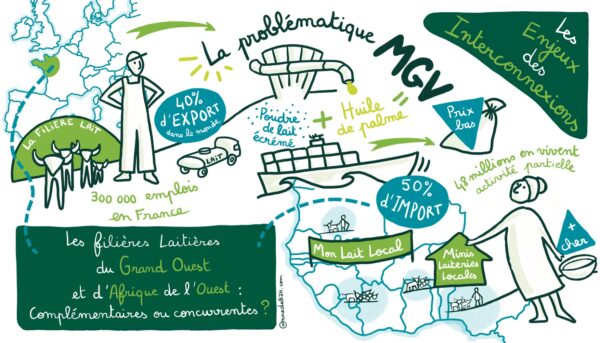 La problématique
MGV
Les
Enjeux
des
Interconnexions
LA FILIÈRE LAIT
40%
d'EXPORT
dans le monde
LAIT
300 000 emplois
en France
Poudre
de lait
écrémé
+
Huile
de palme
Prix
bas
48 millions en vivent
activité partielle
50%
d'IMPORT
Mon Lait Local
Minis
Laiteries
Locales
+
cher
Les filières Laitières
du Grand Ouest
et d'Afrique de l'Ouest :
Complémentaires ou concurrentes ?